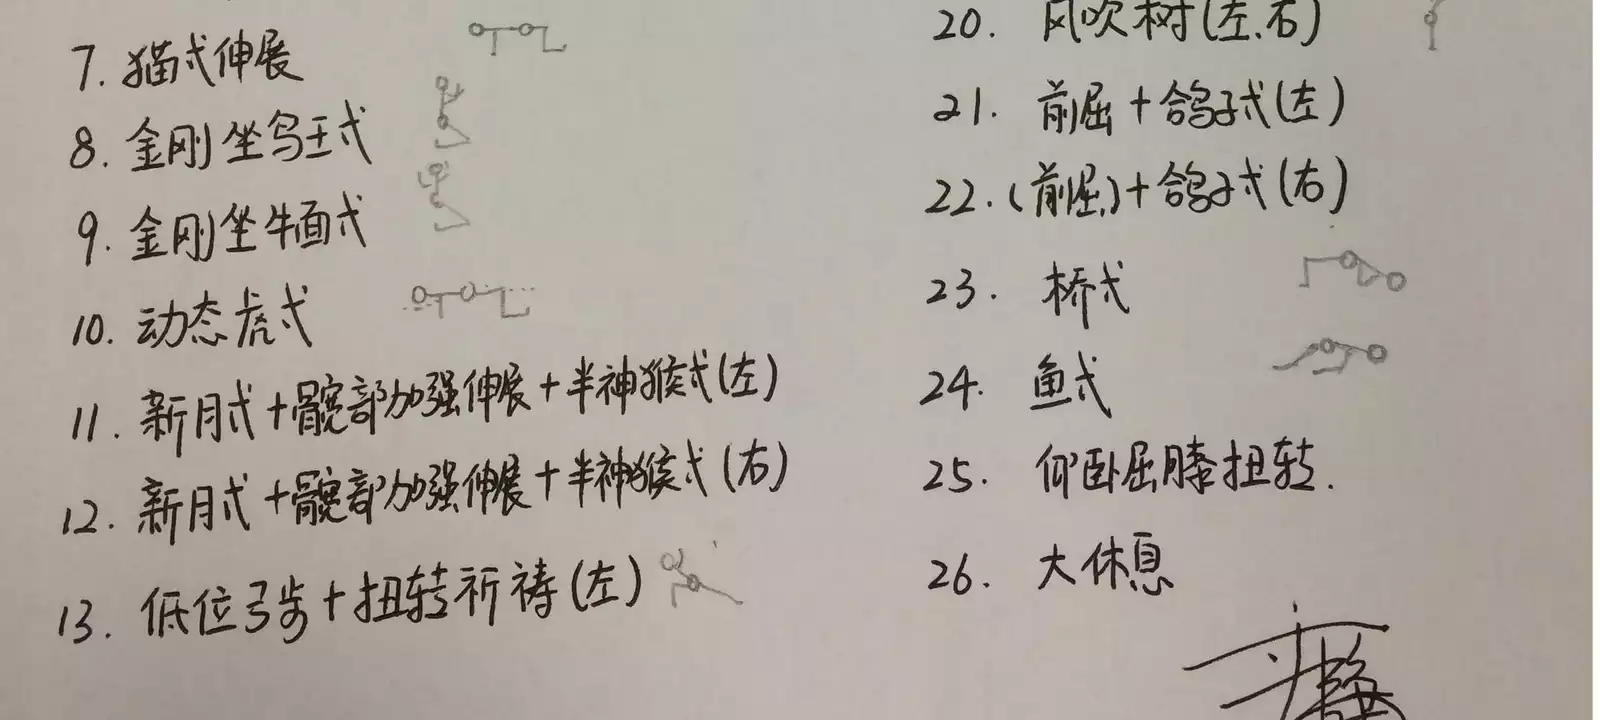 7. 猫式伸展
8. 金刚坐鸟王式
9. 金刚坐牛面式
10. 动态虎式
11. 新月式+髋部加强伸展+半神猴式(左)
12. 新月式+髋部加强伸展+半神猴式(右)
13. 低位弓步+扭转祈祷(左)
20. 风吹树(左.右)
21. 前屈+鸽子式(左)
22. (前屈)+鸽子式(右)
23. 桥式
24. 鱼式
25. 仰卧屈膝扭转.
26. 大休息